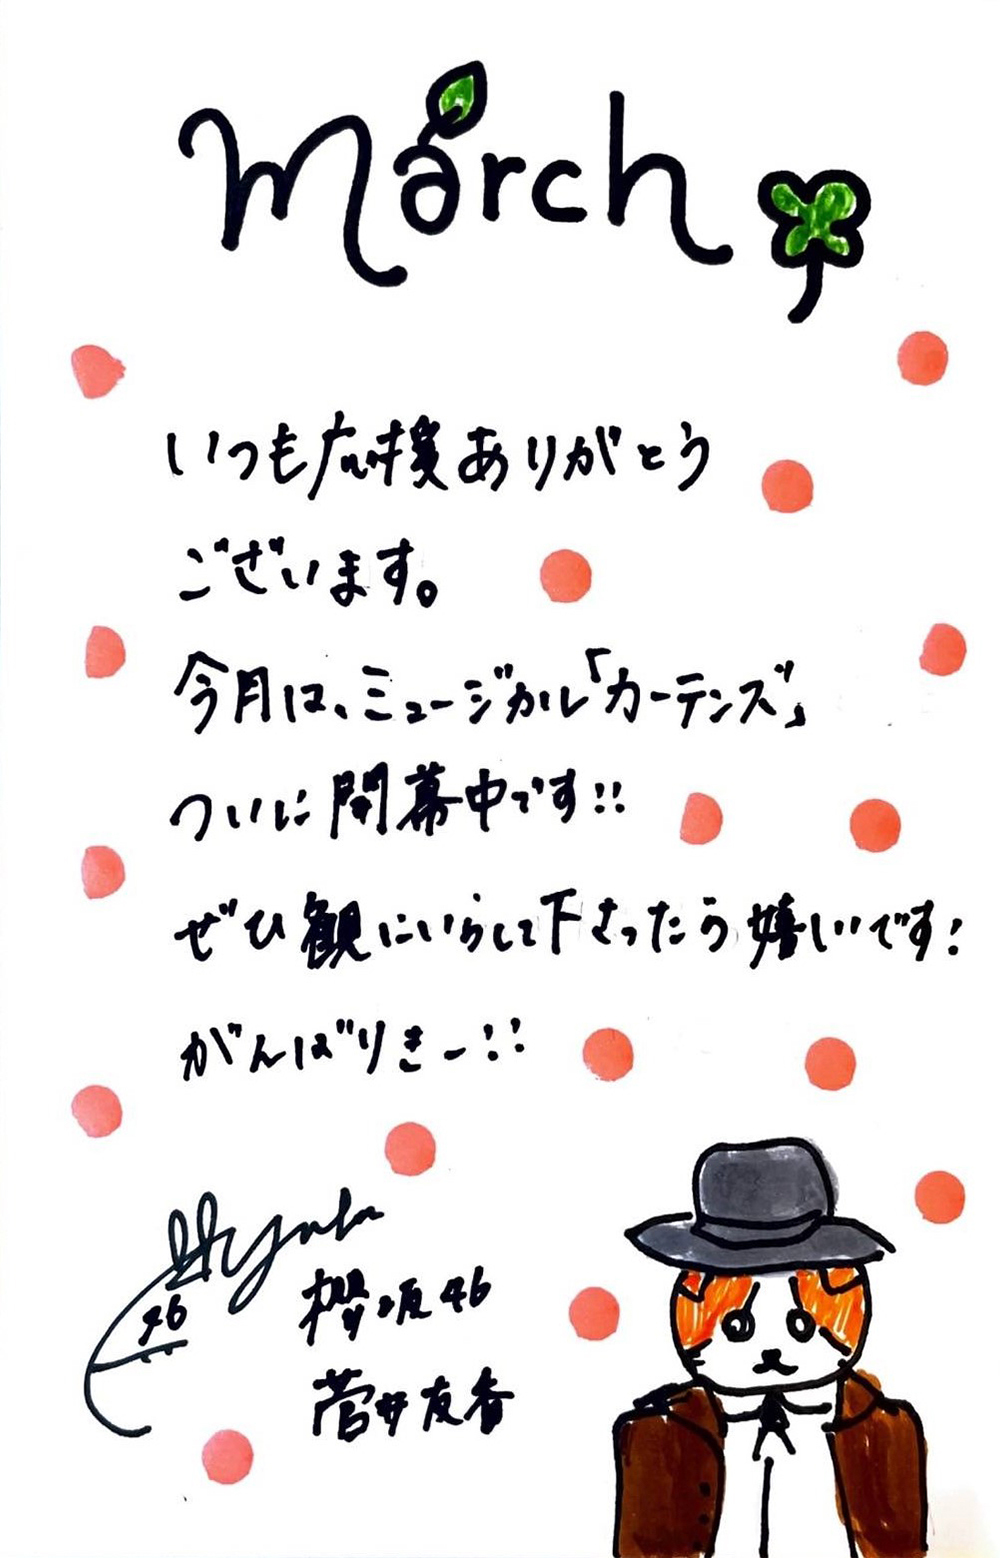 March
いつも応援ありがとう
ございます。
今月は、ミュージカル「カーテンズ」
ついに開幕中です!!
ぜひ観にいらして下さったら嬉しいです!
がんばりきー!!
Yuuka
46
櫻坂46
菅井友香